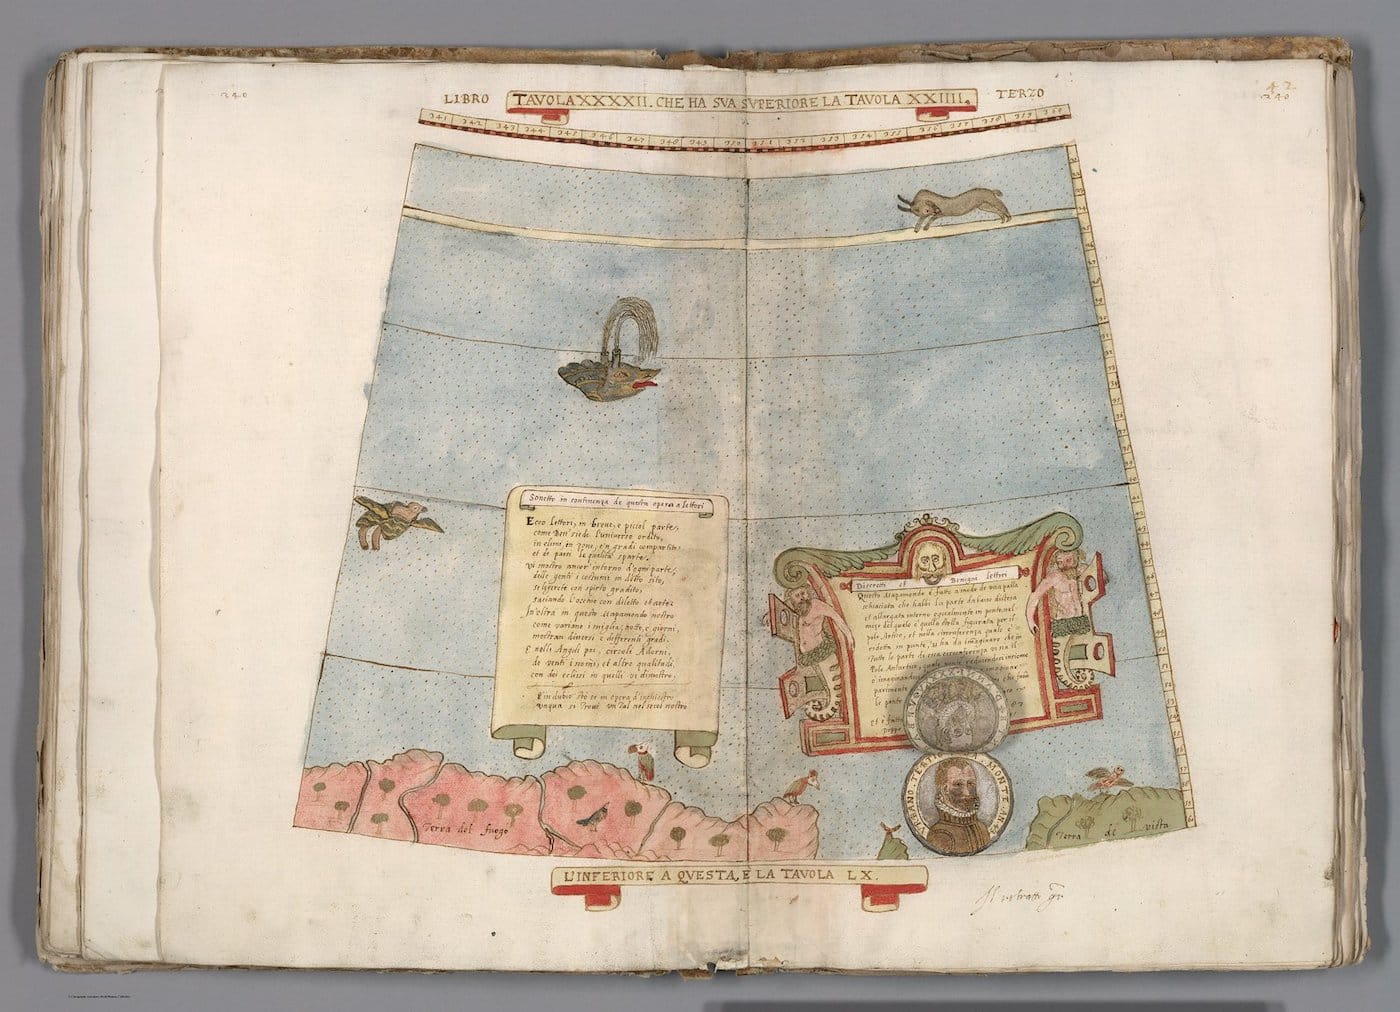 240
42
240
LIBRO TAVOLA XXXXII. CHE HA SVA SVPERIORE LA TAVOLA XXIIII. TERZO
341 342 343 344 345 346 347 348 349 350 351 352 353 354 355 356 357 358 359 360
Sonetto in continenza de questa opera a lettori
Ecco lettori, in breue, e piccol parte,
come Ben' siede l'uniuerso ordito,
in climi, in zone, e'n gradi compartito,
et de paesi le qualita sparte,
Vi mostro ancor' intorno d'ogni parte,
delle genti i costumi in detto sito,
con spirto gradito,
saciando l'occhio con diletto et arte:
In'oltra in questo Mapamondo nostro
come variano i miglia, notte, e giorni,
mostran diuersi e differenti gradi.
E nelli Angoli poi, circoli Adorni,
de venti i nomi, et altre qualitadi,
con doi eclissi in quelli vi dimostro,
E in dubio sto se in opera d'inchiostro
vnqua si troue un tal nel secol nostro
Discreti et Benigni lettori
Questo Mapamondo è fatto a modo de una palla
schiaciata che habbi la parte da basso distesa
et allargata intorno egualmente in ponte, nel
mezo del quale e quella stella figurata per il
polo Artico, et nella circonferenza quale è
redotta in punte, si ha da imaginare che in
tutte le parti di essa circonferenza vi sia il
Polo Antartico, quale uenne reducendosi insieme
o imaginandosi
parimente
le ponte
et è fatto
VRBANO
MONTE
Terra del fuogo
Terra de vista
L'INFERIORE A QVESTA, E LA TAVOLA LX.
Il retratto